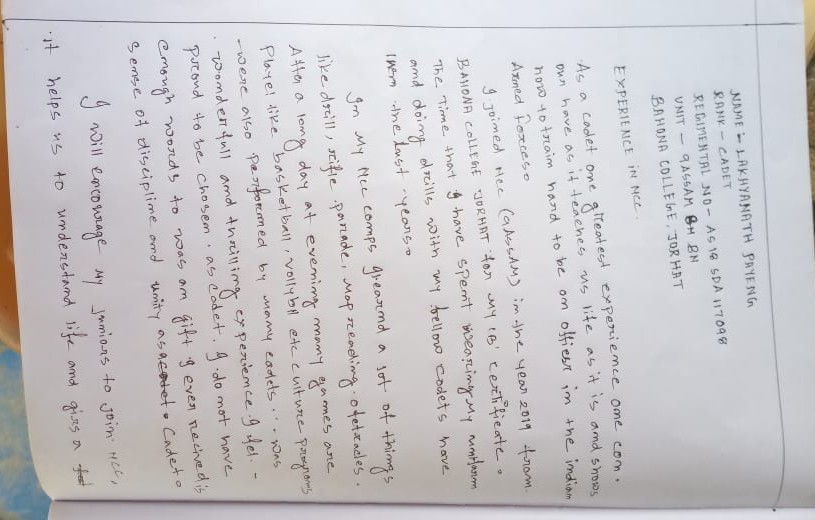 NAME :- LAKHYANATH PAYENG
RANK - CADET
REGIMENTAL NO - AS18 SDA 117098
UNIT - 9ASSAM BN
BAHONA COLLEGE, JORHAT
EXPERIENCE IN NCC.
As a cadet one greatest experience one can.
own have as it teaches us life as it is and shows
how to train hard to be an officer in the indian
Armed forceso
I joined Ncc (9ASSAM) in the year 2019 from.
BAHONA COLLEGE JORHAT for my 'B' certificate.
The Time that I have spent wearing my
and doing drills with my fellow cadets have
been the last years
In My Ncc comps a lot of things
like drill, rifle parade, Map reading.
After a long day at evening many games are
Played like basketball, etc culture programs
were also performed by many cadets... was
wonderfull and thrilling experience I
Pround to be chosen. as cadet. I do not have
enough words to was an gift I ever recived is
sense of discipline and unity as Cadet
I will encourage my juniors to join. NCC,
it helps us to understand life and gives a